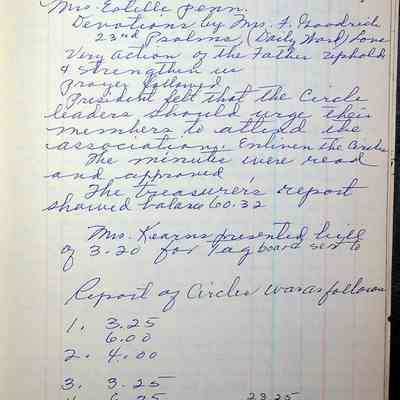 Mrs. Estille Penn.
Devotions by Mrs. F. Goodrich
23rd Psalms, (Daily Word) Love
Very action of the Father upholds
& Strengthen us
Prayer followed
President felt that the Circle
leaders should urge their
members to attend the
association. Enliven the Circle
The minutes were read
and approved
The treasurer's report
showed balance 60.32
Mrs. Kearns presented bill
of 3.20 for Tag board sent to
Report of Circles was as follows
1. 3.25
6.00
2. 4.00
3. 3.25
23.25